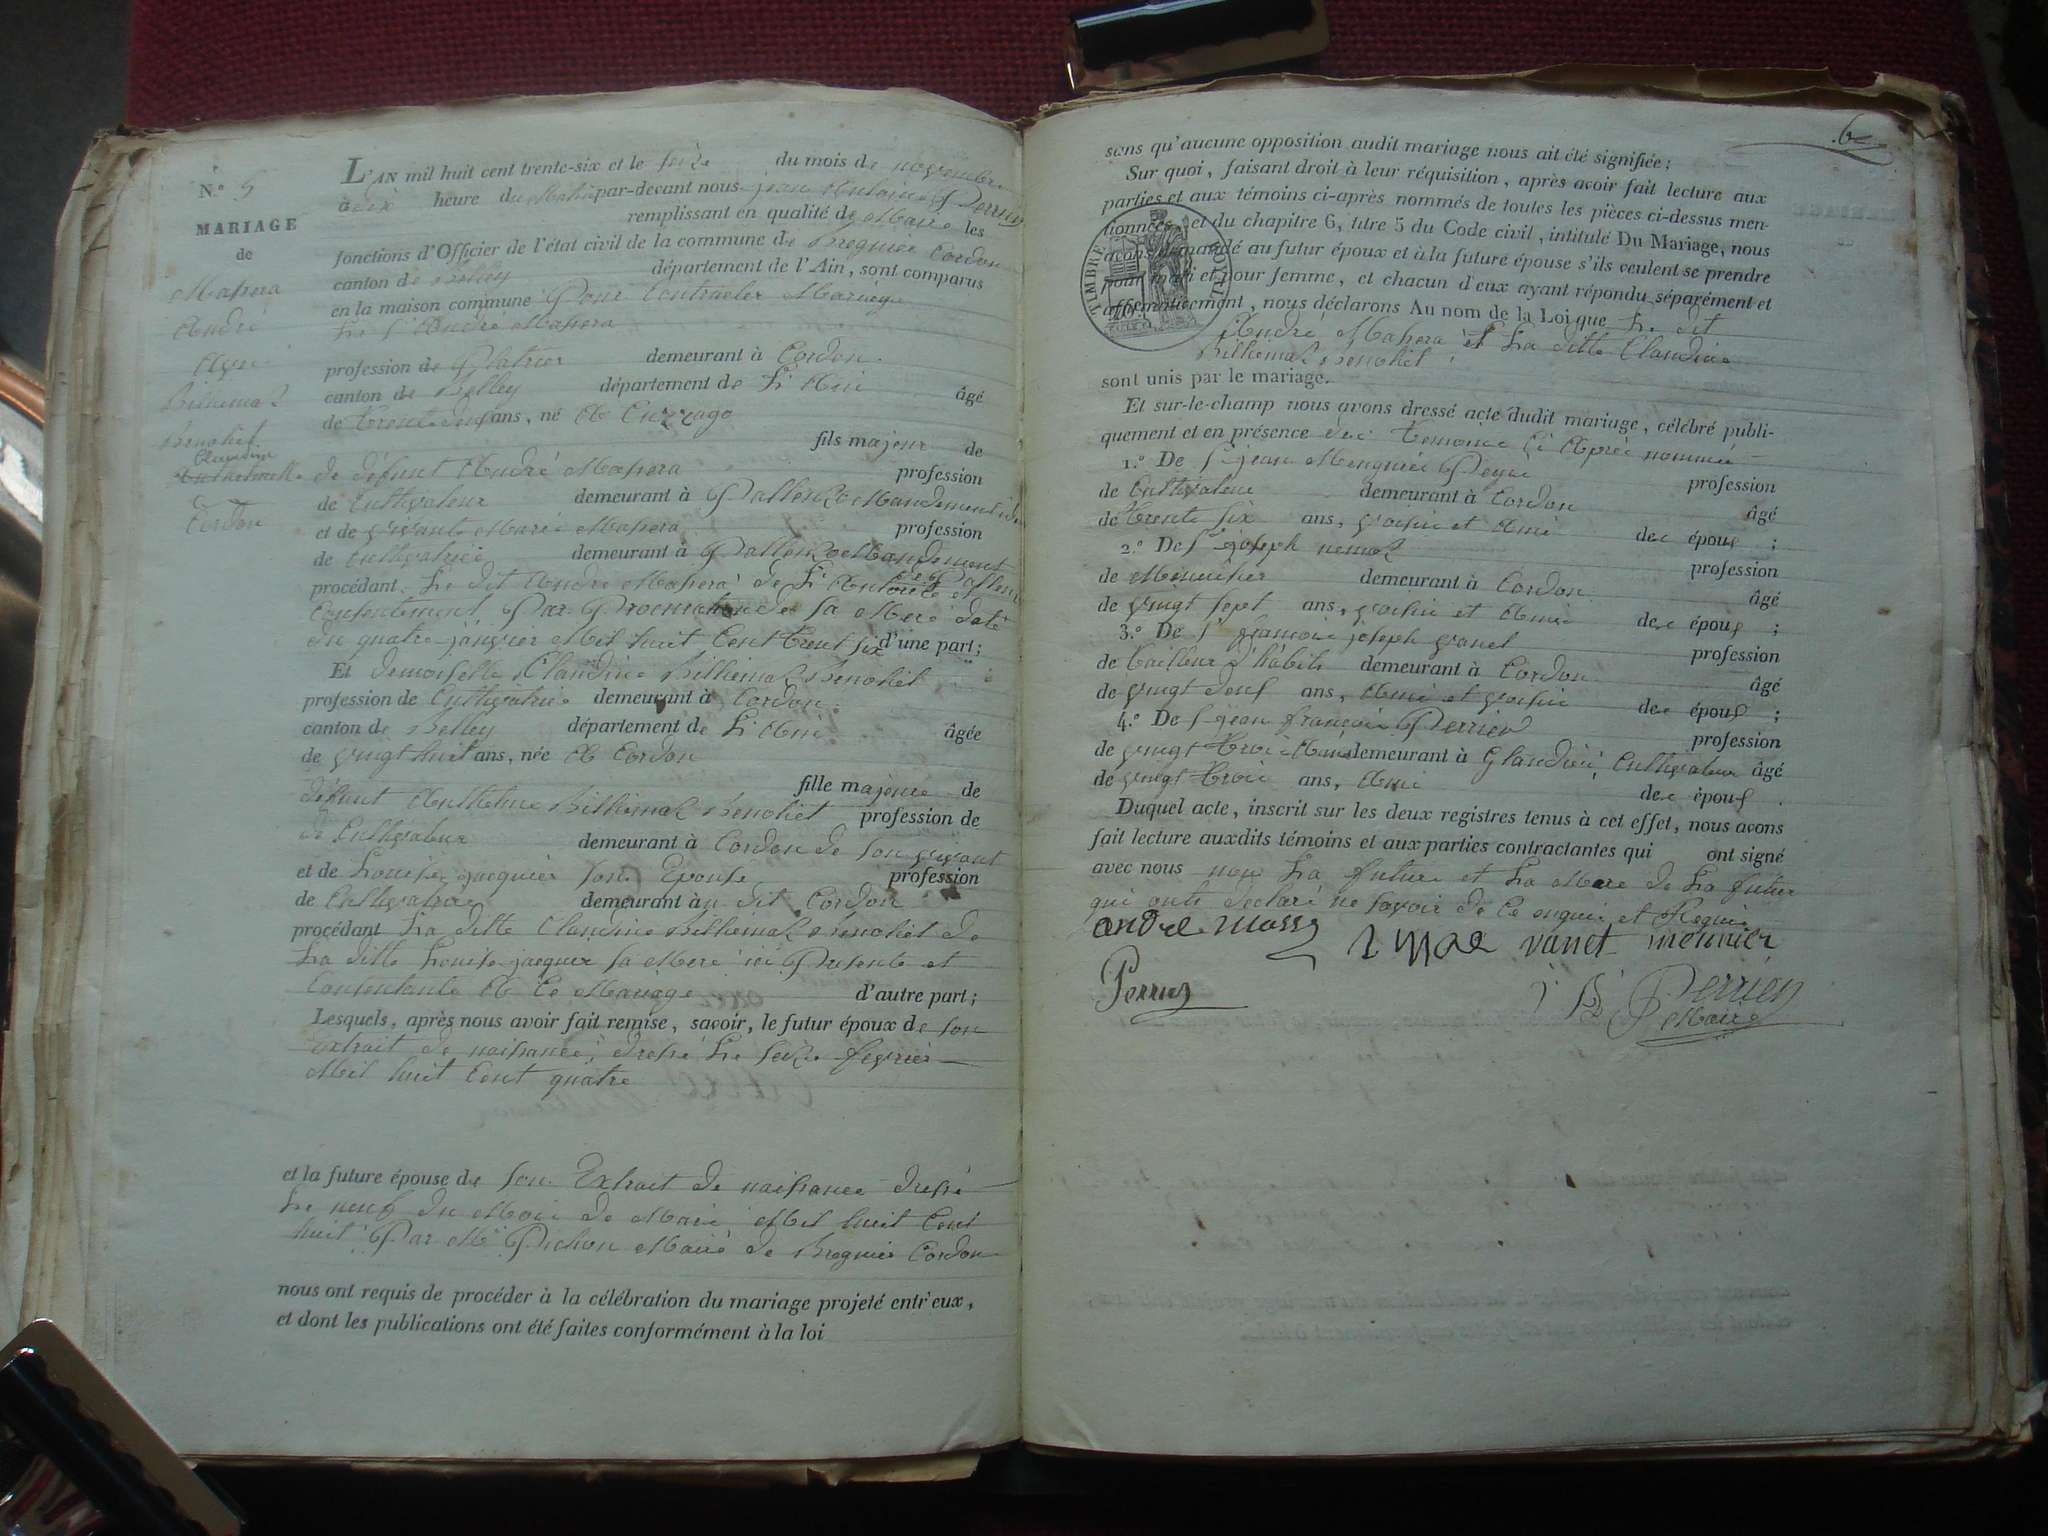 N.º 5
MARIAGE
de
Massera
André
Avec
Billiemaz
Benohil
Claudine
Cordon
L'AN mil huit cent trente-six et le seize du mois de novembre
à dix heure du Matin par-devant nous jean Antoine Perrier
remplissant en qualité de Maire les
fonctions d'Officier de l'état civil de la commune de Bregnier Cordon
canton de Belley département de l'Ain, sont comparus
en la maison commune Pour Contracter Mariage
Le Sr André Massera
profession de Platrier demeurant à Cordon
canton de Belley département de L'Ain âgé
de trente deux ans, né A Cuzzago
fils majeur de
de défunt André Massera profession
de Cultivateur demeurant à Pallenzo Mandement idem
et de vivante Marie Massera profession
de Cultivatrice demeurant à Pallenzo Mandement
procédant Le dit André Massera de L'Autorité et
Consentement Par Procuration de Sa Mere daté
du quatre janvier Mil huit Cent trent six d'une part;
Et demoiselle Claudine Billiemaz Benohil
profession de Cultivatrice demeurant à Cordon
canton de Belley département de L'Ain âgée
de vingt huit ans, née A Cordon
fille majeure de
défunt Anthelme Billiemaz Benohil profession de
de Cultivateur demeurant à Cordon de son vivant
et de Louise jacquier son Epouse profession
de Cultivatrice demeurant à u dit Cordon
procédant La ditte Claudine Billiemaz Benohil de
La ditte Louise jacquier sa Mere ici Presente et
Consentante A Ce Mariage d'autre part;
Lesquels, après nous avoir fait remise, savoir, le futur époux de son
Extrait de naissance, dressé Le seize fevrier
Mil huit Cent quatre
et la future épouse de son Extrait de naissance dressé
Le neuf du Mois de Mars Mil huit Cent
huit Par Mr Pichon Maire de Bregnier Cordon
nous ont requis de procéder à la célébration du mariage projeté entr'eux,
et dont les publications ont été faites conformément à la loi
6
sans qu'aucune opposition audit mariage nous ait été signifiée;
Sur quoi, faisant droit à leur réquisition, après avoir fait lecture aux
parties et aux témoins ci-après nommés de toutes les pièces ci-dessus men-
tionnées, et du chapitre 6, titre 5 du Code civil, intitulé Du Mariage, nous
avons demandé au futur époux et à la future épouse s'ils veulent se prendre
pour mari et pour femme, et chacun d'eux ayant répondu séparément et
affirmativement, nous déclarons Au nom de la Loi que Le dit
André Massera et La ditte Claudine
Billiemaz Benohil
TIMBRE ROYAL
sont unis par le mariage.
Et sur-le-champ nous avons dressé acte dudit mariage, célébré publi-
quement et en présence des temoins Ci Après nommés
1.º De Sr jean Meugnier Peyne profession
de Cultivateur demeurant à Cordon âgé
de trente six ans, voisin et Ami des époux ;
2.º De Sr joseph nemoz profession
de Menuisier demeurant à Cordon âgé
de vingt sept ans, voisin et Ami des époux ;
3.º De Sr françois joseph vanet profession
de tailleur d'habits demeurant à Cordon âgé
de vingt deux ans, Ami et voisin des époux ;
4.º De Sr jean françois Perrier profession
de vingt trois Ans demeurant à Glandieu, Cultivateur âgé
de vingt trois ans, Ami des époux.
Duquel acte, inscrit sur les deux registres tenus à cet effet, nous avons
fait lecture auxdits témoins et aux parties contractantes qui ont signé
avec nous non La future et La Mere de La future
qui ont déclaré ne savoir de Ce enquis et Requis
andre massera vanet meunier
Perrier
Perrier
Maire